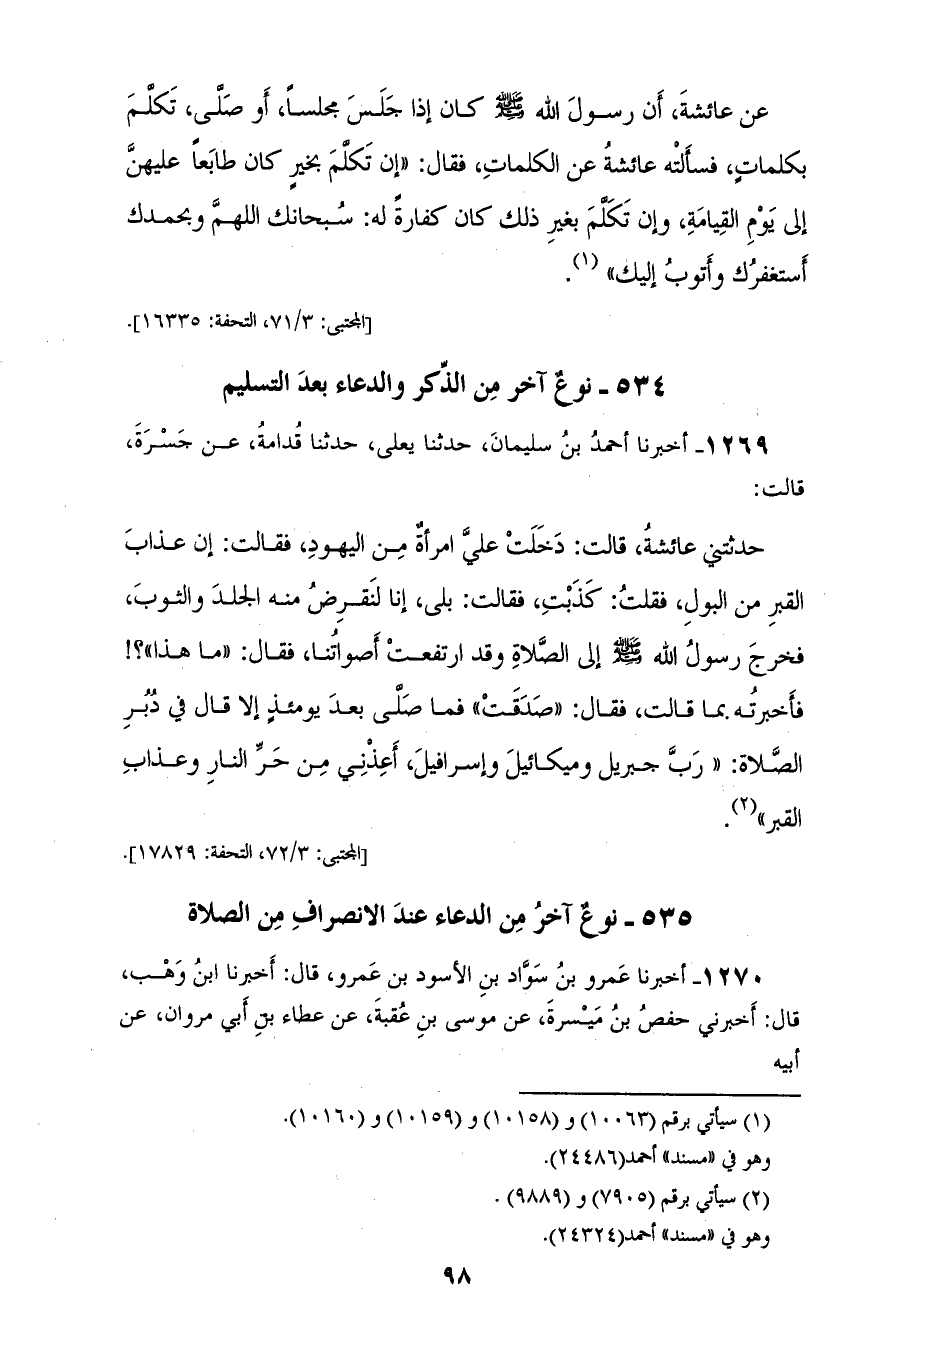 عن عائشةَ، أن رسولَ الله ﷺ كان إذا جَلَسَ مجلساً، أو صَلَّى، تَكلَّمَ
بكلماتٍ، فسألَتْه عائشةُ عن الكلماتِ، فقال: «إن تَكلَّمَ بخيرٍ كان طابَعاً عليهنَّ
إلى يَوْمِ القِيامَةِ، وإن تَكَلَّمَ بغيرِ ذلك كان كفارةً له: سُبحانك اللهمَّ وبحمدك
أَستغفرُك وأَتوبُ إليك» (١).
[المجتبى: ٧١/٣، التحفة: ١٦٣٣٥].
٥٣٤ ـ نوعٌ آخر مِن الذِّكر والدعاء بعدَ التسليم
١٢٦٩ـ أخبرنا أحمدُ بنُ سليمانَ، حدثنا يعلى، حدثنا قُدامةُ، عن جَسْرَةَ،
قالت:
حدثتني عائشةُ، قالت: دَخَلَتْ عليَّ امرأةٌ مِن اليهودِ، فقالت: إن عذابَ
القبرِ من البولِ، فقلتُ: كَذَبْتِ، فقالت: بلى، إنا لَنَقرِضُ منه الجلدَ والثوبَ،
فخرجَ رسولُ الله ﷺ إلى الصَّلاةِ وقد ارتفعتْ أَصواتُنا، فقال: «ما هذا»؟!
فأَخبرتُه بما قالت، فقال: «صَدَقَتْ» فما صَلَّى بعدَ يومئذٍ إلا قال في دُبُرِ
الصَّلاة: « رَبَّ جبريل وميكائيلَ وإسرافيلَ، أَعِذْنِي مِن حَرِّ النارِ وعذابِ
القبر»(٢).
[المجتبى: ٧٢/٣، التحفة: ١٧٨٢٩].
٥٣٥ ـ نوعٌ آخرُ مِن الدعاء عندَ الانصرافِ مِن الصلاة
١٢٧٠ـ أخبرنا عَمرو بنُ سَوَّاد بنِ الأسود بن عَمرو، قال: أَخبرنا ابنُ وَهْب،
قال: أَخبرني حفصُ بنُ مَيْسرةَ، عن موسى بنِ عُقبةَ، عن عطاء بنِ أَبي مروان، عن
أَبيه
(١) سيأتي برقم (١٠٠٦٣) و (١٠١٥٨) و (١٠١٥٩) و (١٠١٦٠).
وهو في «مسند» أحمد(٢٤٤٨٦).
(٢) سيأتي برقم (٧٩٠٥) و (٩٨٨٩) .
وهو في «مسند» أحمد(٢٤٣٢٤).
٩٨